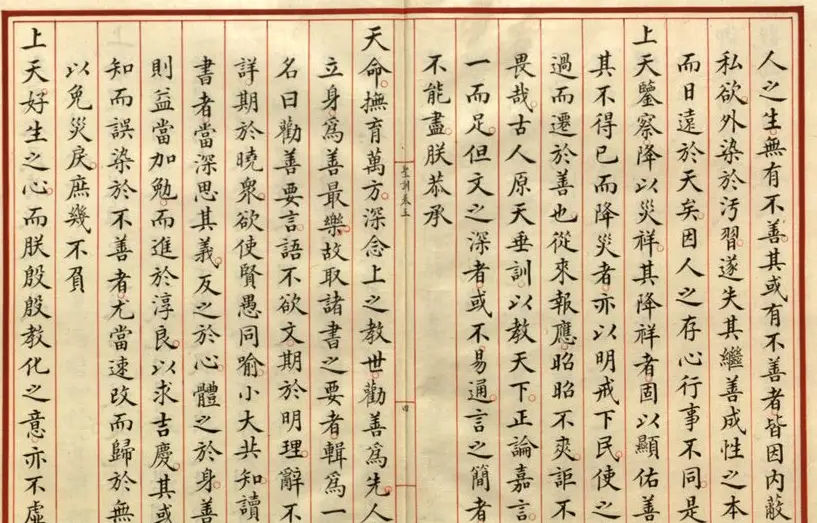 人之生無有不善其或有不善者皆因內蔽
私欲外染於汚習遂失其繼善成性之本
而日遠於天矣因人之存心行事不同是
上天鑒察降以災祥其降祥者固以顯佑善
其不得已而降災者亦以明戒下民使之
過而遷於善也從來報應昭昭不爽詎不
畏哉古人原天垂訓以教天下正論嘉言
一而足但文之深者或不易通言之簡者
不能盡朕恭承
聖訓卷三
四
天命撫育萬方深念上之教世勸善為先人
立身為善最樂故取諸書之要者輯為一
名曰勸善要言語不欲文期於明理辭不
詳期於曉衆欲使賢愚同喻小大共知讀
書者當深思其義反之於心體之於身善
則益當加勉而進於淳良以求吉慶其或
知而誤染於不善者尤當速改而歸於無
以免災戾庶幾不負
上天好生之心而朕殷殷教化之意亦不虛